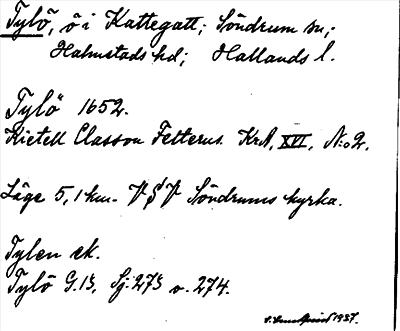 Tylö, ö i Kattegatt; Söndrum sn;
Halmstads hd; Hallands l.
Tylö 1652.
Kietell Classon Felterus. KrA, XVI, N:o 2.
Läge 5,1 km. V S V Söndrums kyrka.
Tylen ek.
Tylö G.13, Sj. 273 o. 274.
1937.